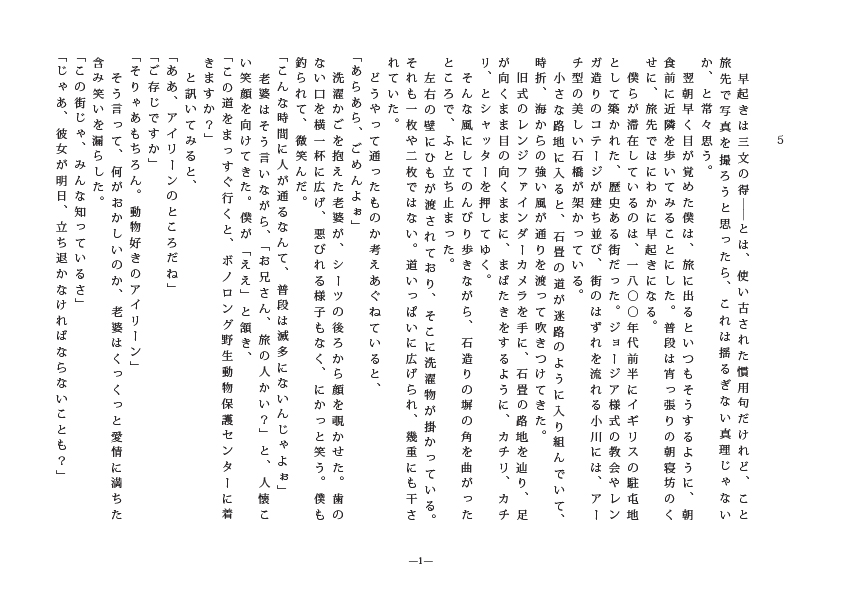 5
　早起きは三文の得――とは、使い古された慣用句だけれど、こと
旅先で写真を撮ろうと思ったら、これは揺るぎない真理じゃない
か、と常々思う。
　翌朝早く目が覚めた僕は、旅に出るといつもそうするように、朝
食前に近隣を歩いてみることにした。普段は宵っ張りの朝寝坊のく
せに、旅先ではにわかに早起きになる。
　僕らが滞在しているのは、一八〇〇年代前半にイギリスの駐屯地
として築かれた、歴史ある街だった。ジョージア様式の教会やレン
ガ造りのコテージが建ち並び、街のはずれを流れる小川には、アー
チ型の美しい石橋が架かっている。
　小さな路地に入ると、石畳の道が迷路のように入り組んでいて、
時折、海からの強い風が通りを渡って吹きつけてきた。
　旧式のレンジファインダーカメラを手に、石畳の路地を辿り、足
が向くまま目の向くままに、まばたきをするように、カチリ、カチ
リ、とシャッターを押してゆく。
　そんな風にしてのんびり歩きながら、石造りの塀の角を曲がった
ところで、ふと立ち止まった。
　左右の壁にひもが渡されており、そこに洗濯物が掛かっている。
それも一枚や二枚ではない。道いっぱいに広げられ、幾重にも干さ
れていた。
　どうやって通ったものか考えあぐねていると、
「あらあら、ごめんよぉ」
　洗濯かごを抱えた老婆が、シーツの後ろから顔を覗かせた。歯の
ない口を横一杯に広げ、悪びれる様子もなく、にかっと笑う。僕も
釣られて、微笑んだ。
「こんな時間に人が通るなんて、普段は滅多にないんじゃよぉ」
　老婆はそう言いながら、「お兄さん、旅の人かい？」と、人懐こ
い笑顔を向けてきた。僕が「ええ」と頷き、
「この道をまっすぐ行くと、ボノロング野生動物保護センターに着
きますか？」
　と訊いてみると、
「ああ、アイリーンのところだね」
「ご存じですか」
「そりゃあもちろん。動物好きのアイリーン」
　そう言って、何がおかしいのか、老婆はくっくっと愛情に満ちた
含み笑いを漏らした。
「この街じゃ、みんな知っているさ」
「じゃあ、彼女が明日、立ち退かなければならないことも？」
―1―